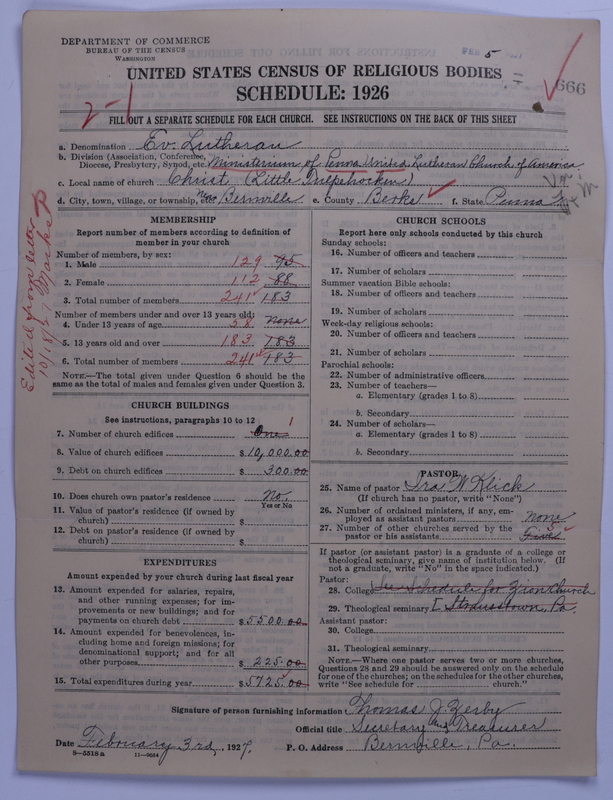 DEPARTMENT OF COMMERCE
BUREAU OF THE CENSUS
WASHINGTON
FEB 5
666
UNITED STATES CENSUS OF RELIGIOUS BODIES
SCHEDULE: 1926
2-1
FILL OUT A SEPARATE SCHEDULE FOR EACH CHURCH. SEE INSTRUCTIONS ON THE BACK OF THIS SHEET
a. Denomination Ev. Lutheran
b. Division (Association, Conference, Diocese, Presbytery, Synod, etc. Ministerium of Penna United Lutheran Church of America
c. Local name of church Christ (Little Tulpehocken)
d. City, town, village, or township, etc. Near Bernville e. County Berks f. State Penna
Edited from letter
10/18/27 Marks
MEMBERSHIP
Report number of members according to definition of
member in your church
Number of members, by sex:
1. Male 129 95
2. Female 112 88
3. Total number of members 241 183
Number of members under and over 13 years old:
4. Under 13 years of age 58 None
5. 13 years old and over 183 183
6. Total number of members 241 183
NOTE.—The total given under Question 6 should be the
same as the total of males and females given under Question 3.
CHURCH BUILDINGS
See instructions, paragraphs 10 to 12
7. Number of church edifices One 1
8. Value of church edifices $10,000.00
9. Debt on church edifices $300.00
10. Does church own pastor's residence No.
Yes or No
11. Value of pastor's residence (if owned by
church) $
12. Debt on pastor's residence (if owned by
church) $
EXPENDITURES
Amount expended by your church during last fiscal year
13. Amount expended for salaries, repairs,
and other running expenses; for im-
provements or new buildings; and for
payments on church debt $5500.00
14. Amount expended for benevolences, in-
cluding home and foreign missions; for
denominational support; and for all
other purposes $225.00
15. Total expenditures during year $5725.00
CHURCH SCHOOLS
Report here only schools conducted by this church
Sunday schools:
16. Number of officers and teachers
17. Number of scholars
Summer vacation Bible schools:
18. Number of officers and teachers
19. Number of scholars
Week-day religious schools:
20. Number of officers and teachers
21. Number of scholars
Parochial schools:
22. Number of administrative officers
23. Number of teachers—
a. Elementary (grades 1 to 8)
b. Secondary
24. Number of scholars—
a. Elementary (grades 1 to 8)
b. Secondary
PASTOR
25. Name of pastor Ira W Klick
(If church has no pastor, write "None")
26. Number of ordained ministers, if any, em-
ployed as assistant pastors None
27. Number of other churches served by the
pastor or his assistants Five 5
If pastor (or assistant pastor) is a graduate of a college or
theological seminary, give name of institution below. (If
not a graduate, write "No" in the space indicated.)
Pastor:
28. College See Schedule for Zion Church
29. Theological seminary Strausstown, Pa.
Assistant pastor:
30. College
31. Theological seminary
NOTE.—Where one pastor serves two or more churches,
Questions 28 and 29 should be answered only on the schedule
for one of the churches; on the schedules for the other churches,
write "See schedule for church."
Signature of person furnishing information Thomas J. Zerby
Official title Secretary and Treasurer
Date February 3rd, 1927. P. O. Address Bernville, Pa.
8—5518 a 11—9034